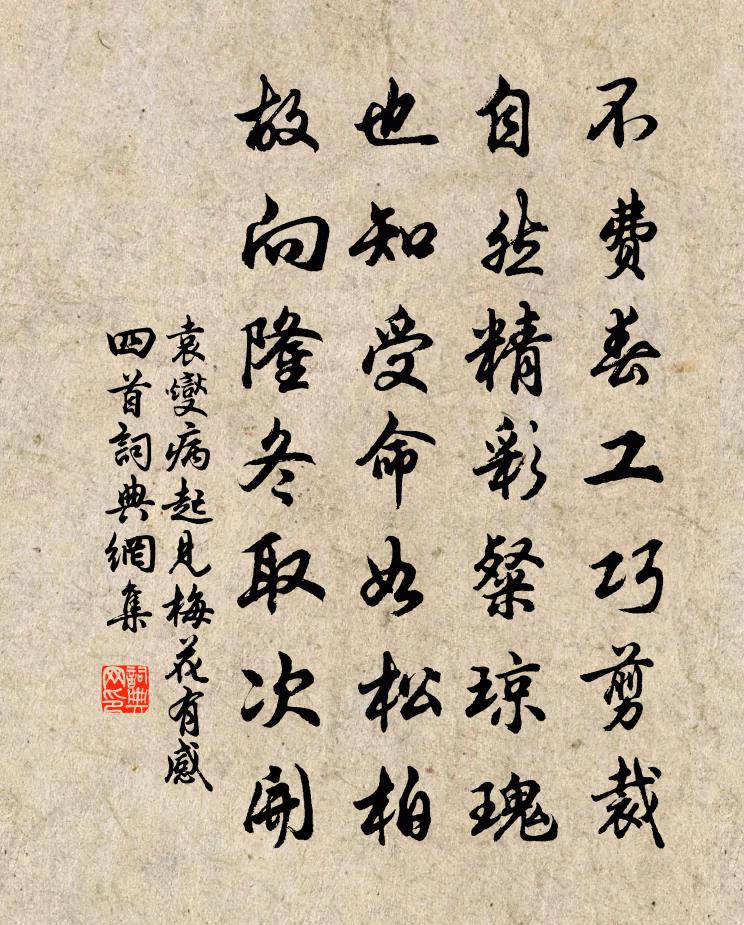 不費春工巧剪裁
自然精彩粲琼瑰
也知受命如松柏
故向隆冬取次開
袁燮病起見梅花有感
四首詞典網集
詞典
网印